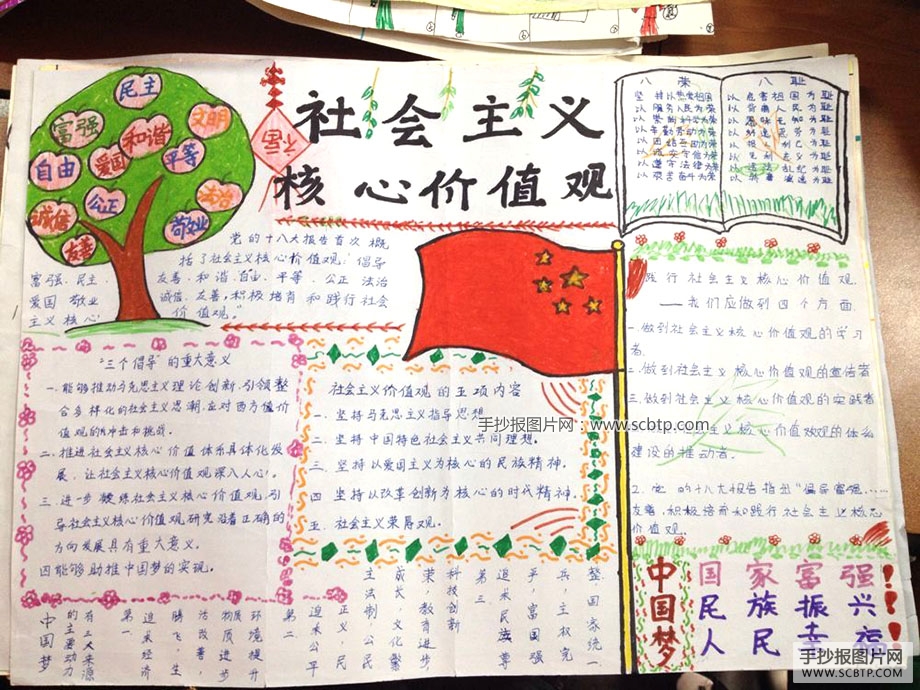 社会主义
核心价值观
民主
富强
文明
和谐
自由
爱国
平等
诚信
公正
法治
敬业
友善
八荣 八耻
坚持以热爱祖国为荣 以危害祖国为耻
以服务人民为荣 以背离人民为耻
以崇尚科学为荣 以愚昧无知为耻
以辛勤劳动为荣 以好逸恶劳为耻
以团结互助为荣 以损人利己为耻
以诚实守信为荣 以见利忘义为耻
以遵守法律为荣 以违法乱纪为耻
以艰苦奋斗为荣 以骄奢淫逸为耻
党的十八大报告首次概
括了社会主义核心价值观：倡导
富强、民主、友善、和谐、自由、平等、公正、法治
爱国、敬业、诚信、友善，积极培育和践行社会
主义核心价值观。"
"三个倡导"的重大意义
一.能够推动马克思主义理论创新，引领整
合多样化的社会主义思潮，应对西方值价
值观的冲击和挑战。
二.推进社会主义核心价值体系具体化发
展，让社会主义核心价值观深入人心。
三.进一步凝练社会主义核心价值观，引
导社会主义核心价值观研究沿着正确的
方向发展具有重大意义。
四能够助推中国梦的实现。
社会主义价值观的五项内容
一.坚持马克思主义指导思想
二.坚持中国特色社会主义共同理想。
三.坚持以爱国主义为核心的民族精神。
四 坚持以改革创新为核心的时代精神.
五.社会主义荣辱观。
手抄报图片网：www.scbtp.com
践行社会主义核心价值观，
——我们应做到四个方面
一.做到社会主义核心价值观的学习
者.
二.做到社会主义核心价值观的宣传者
三.做到社会主义核心价值观的实践者
主义核心价值观的
建设的推动者.
2. 党的十八大报告指出"倡导富强……
友善，积极培育和践行社会主义核心
价值观。
中国梦
有三大来源
的主要动力
第一
追求经济
腾飞，生
活改善，
物质进步
环境提升
第二
追求公平
正义，民
主法制，公民
成长，文化繁
荣，教育进步
科技创新
第三
追求民族尊
平，富国强
兵，主权完
整，国家统一
中国梦
国家富强！
民族振兴！
人民幸福！
手抄报图片网
WWW.SCBTP.COM